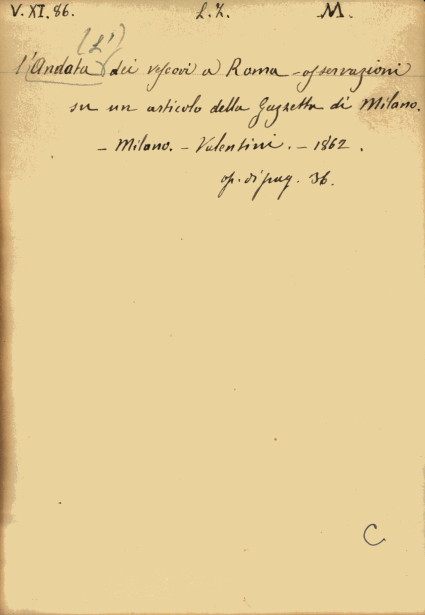 V. XI. 86. L. Z. M.
(L')
l'Andata dei vescovi a Roma - osservazioni
su un articolo della Gazzetta di Milano.
- Milano. - Valentini. - 1862.
op. di pag. 36.
C